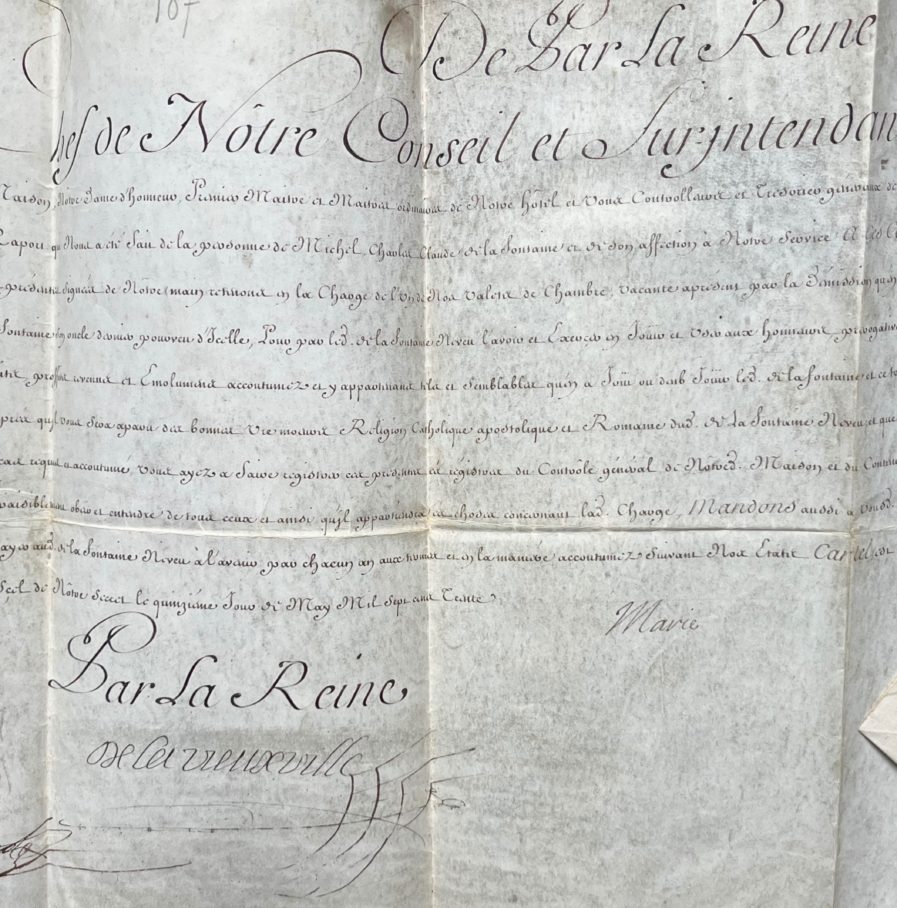 107
De Par La Reine
hefs de Nôtre Conseil et Sur-jntendan
Maison, Nôtre Dame d'honneur, Premier Maitre et Maitres ordinaires de Nôtre hôtel et vous Controlleurs et Tresoriers generaux de
Rapport qui Nous a été fait de la personne de Michel Charles Claude de la fontaine et de son affection à Notre Service A
présentes signées de Nôtre main retenons en la Charge de l'Un de Nos Valets de Chambre, vacante apresent par la Démission qu'en
fontaine son oncle dernier pourveu d'Icelle, Pour par led. de la fontaine Neveu l'avoir et Exercer en Joüir et User aux honneurs prerogative
profits revenus et Emoluments accoutumez et y appartenans tels et semblables qu'en a Joüi ou deub Joüir led. de la fontaine et ce
qu'il vous sera aparu des bonnes Vie moeurs Religion Catholique apostolique et Romaine dud. de La fontaine Neveu et que
requis et accoutumé, vous ayez a faire registrer ces présentes és registres du Contrôle général de Nôtred. Maison et du
paisiblement obeir et entendre de tous ceux et ainsi qu'il appartiendra es choses concernant lad. Charge, Mandons aussi à
aud. de la fontaine Neveu à l'avenir par chacun an aux termes et en la manière accoutumez suivant Nos Etats Car tel est
Scel de Nôtre Secret le quinziéme Jour de May Mil Sept cens Trente.
Marie
Par La Reine
De la vieuxville